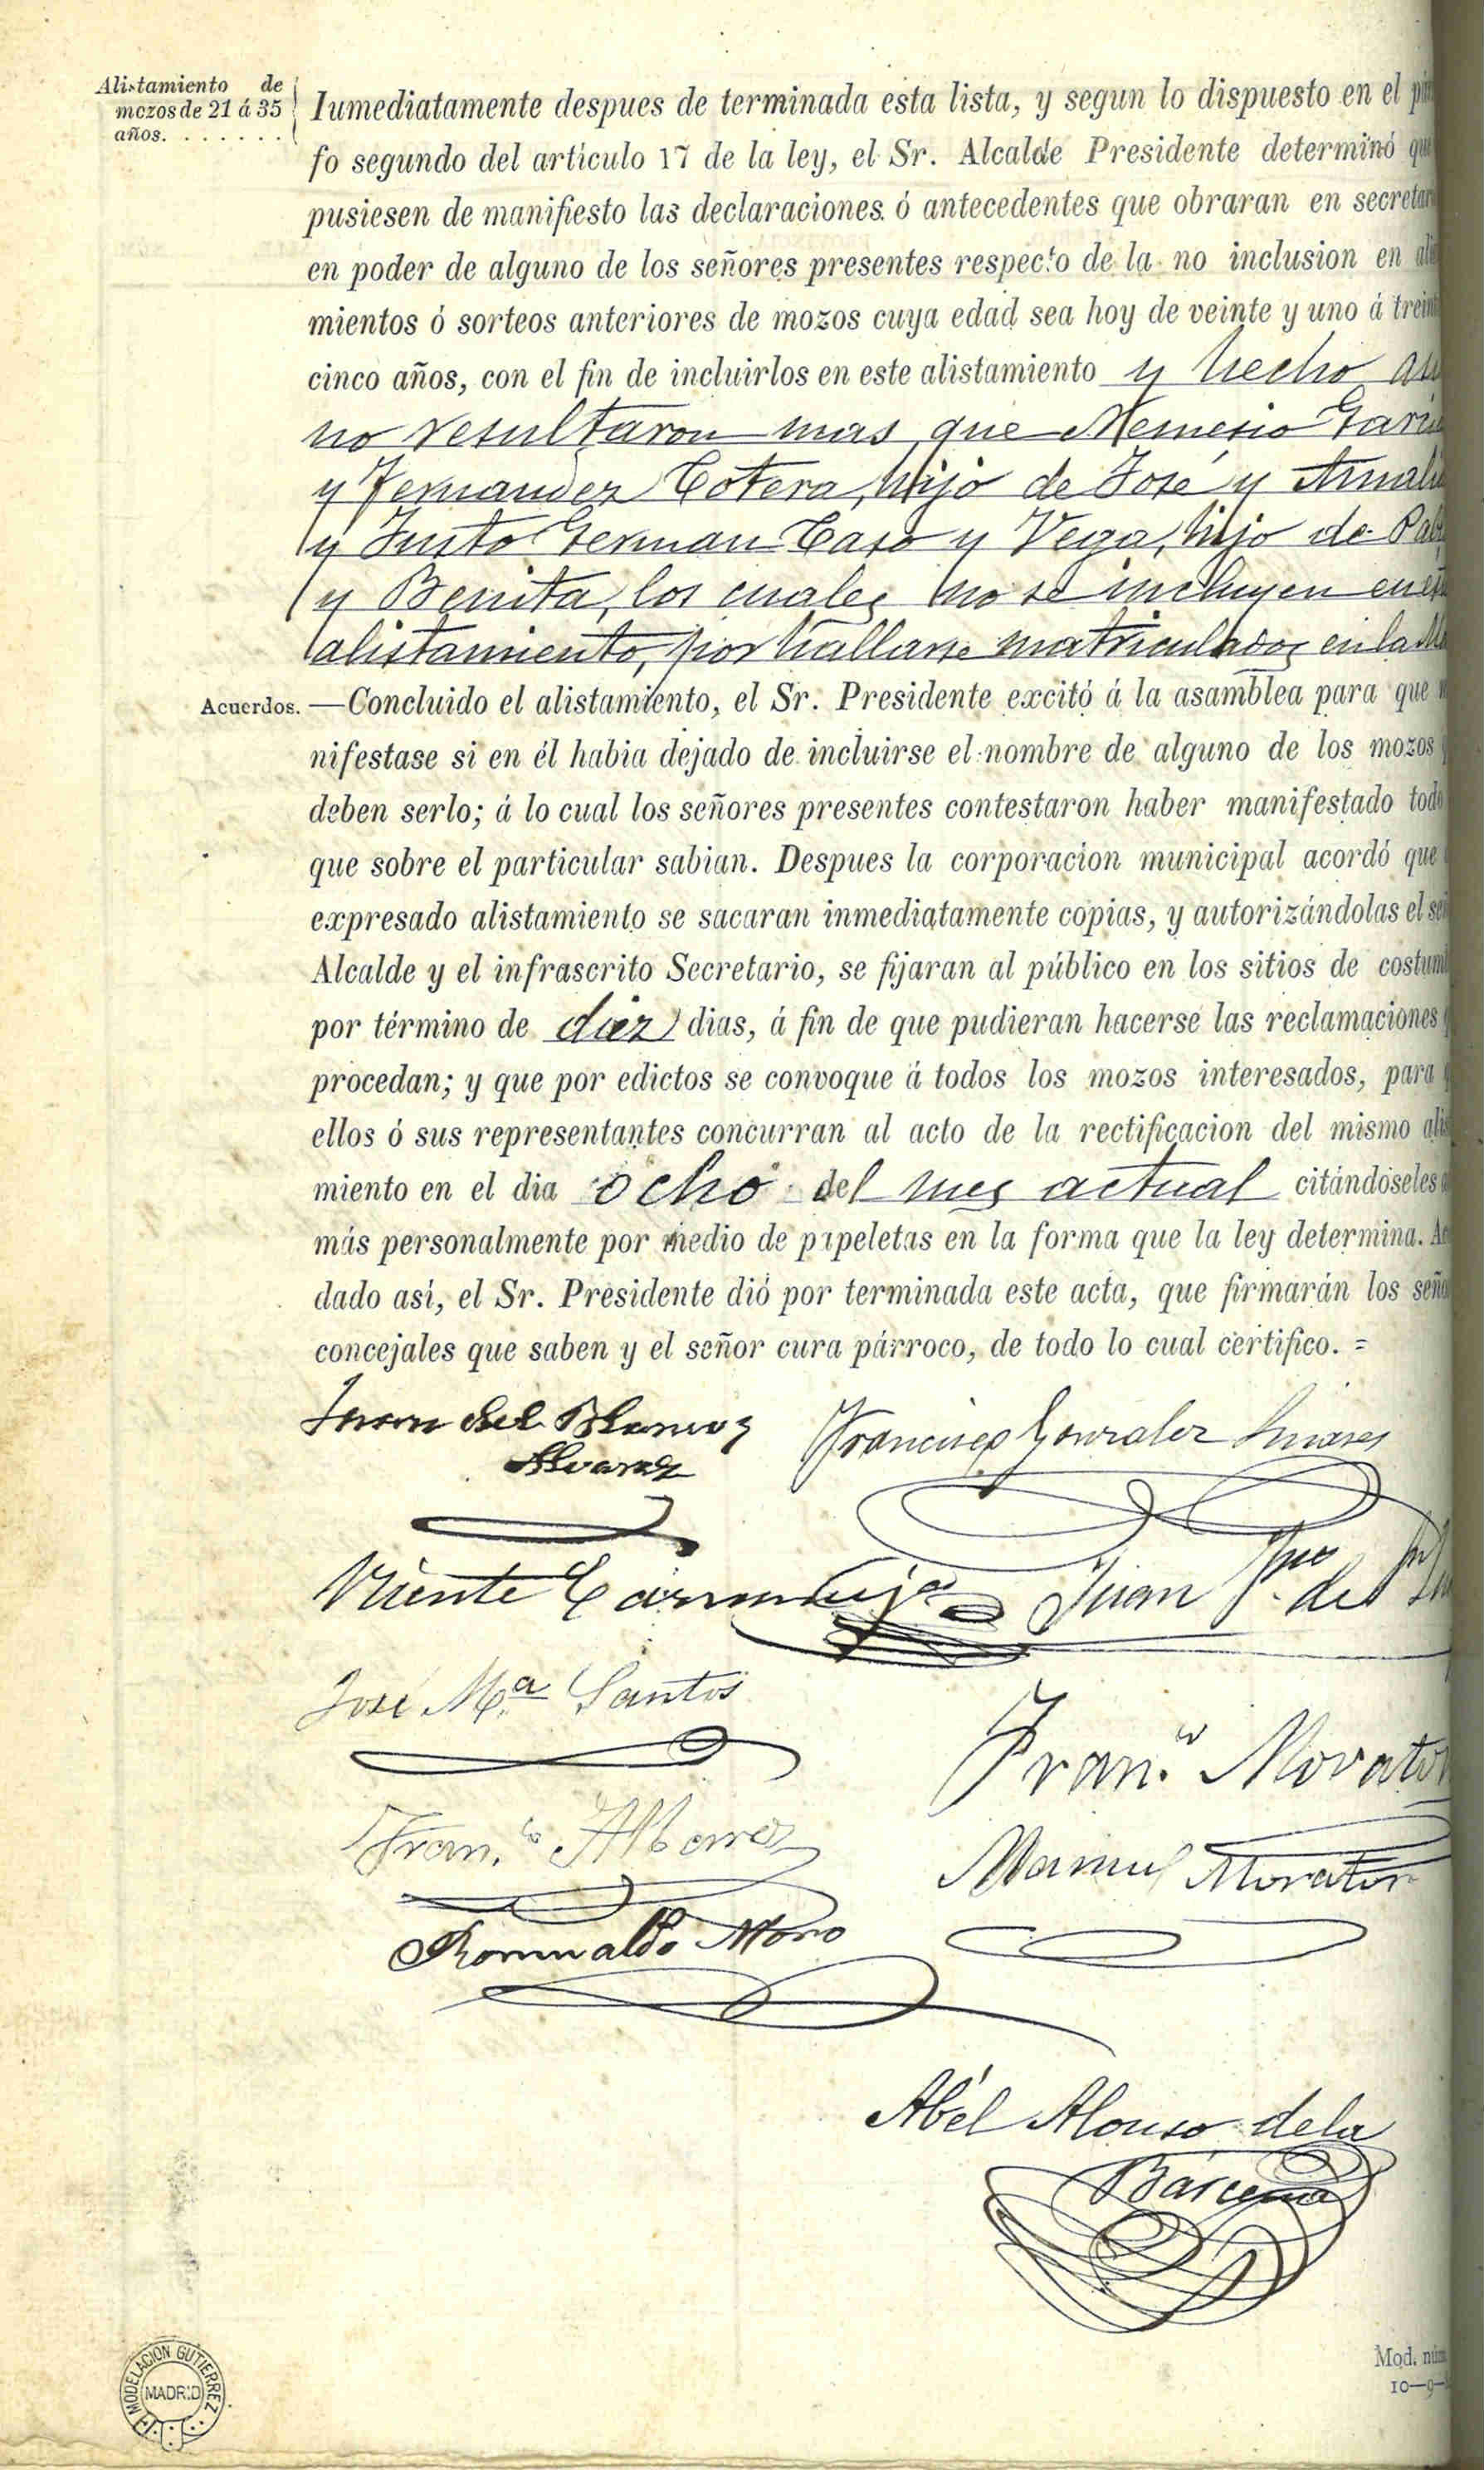 Alistamiento de
mozos de 21 á 35
años. . . . . . .
Iumediatamente despues de terminada esta lista, y segun lo dispuesto en el
fo segundo del artículo 17 de la ley, el Sr. Alcalde Presidente determinó que
pusiesen de manifiesto las declaraciones ó antecedentes que obraran en secretar
en poder de alguno de los señores presentes respecto de la no inclusion en
mientos ó sorteos anteriores de mozos cuya edad sea hoy de veinte y uno á trein
cinco años, con el fin de incluirlos en este alistamiento y hecho
no resultaron mas que Nemesio Garci
y Fernandez Cotera, hijo de José y Amali
y Justo German Caso y Vega, hijo de
y Benita, los cuales no se incluyen en
alistamiento, por hallarse matriculados en la
Acuerdos. —Concluido el alistamiento, el Sr. Presidente excitó á la asamblea para que
nifestase si en él habia dejado de incluirse el nombre de alguno de los mozos
deben serlo; á lo cual los señores presentes contestaron haber manifestado todo
que sobre el particular sabian. Despues la corporacion municipal acordó que
expresado alistamiento se sacaran inmediatamente copias, y autorizándolas el
Alcalde y el infrascrito Secretario, se fijaran al público en los sitios de costum
por término de diez dias, á fin de que pudieran hacerse las reclamaciones
procedan; y que por edictos se convoque á todos los mozos interesados, para
ellos ó sus representantes concurran al acto de la rectificacion del mismo
miento en el dia ocho del mes actual citándoseles
más personalmente por medio de papeletas en la forma que la ley determina.
dado así, el Sr. Presidente dió por terminada este acta, que firmarán los seño
concejales que saben y el señor cura párroco, de todo lo cual certifico. =
Juan del Blanco Francisco Gonzalez
Alvarez
Vicente Juan del
José M.ª Santos
Fran.co Morato
Fran.co
Manuel Morato
Romualdo Moro
Abél Alonso de la
Bárcena
MODELACION GUTIERREZ
MADRID
Mod. núm
10—9—